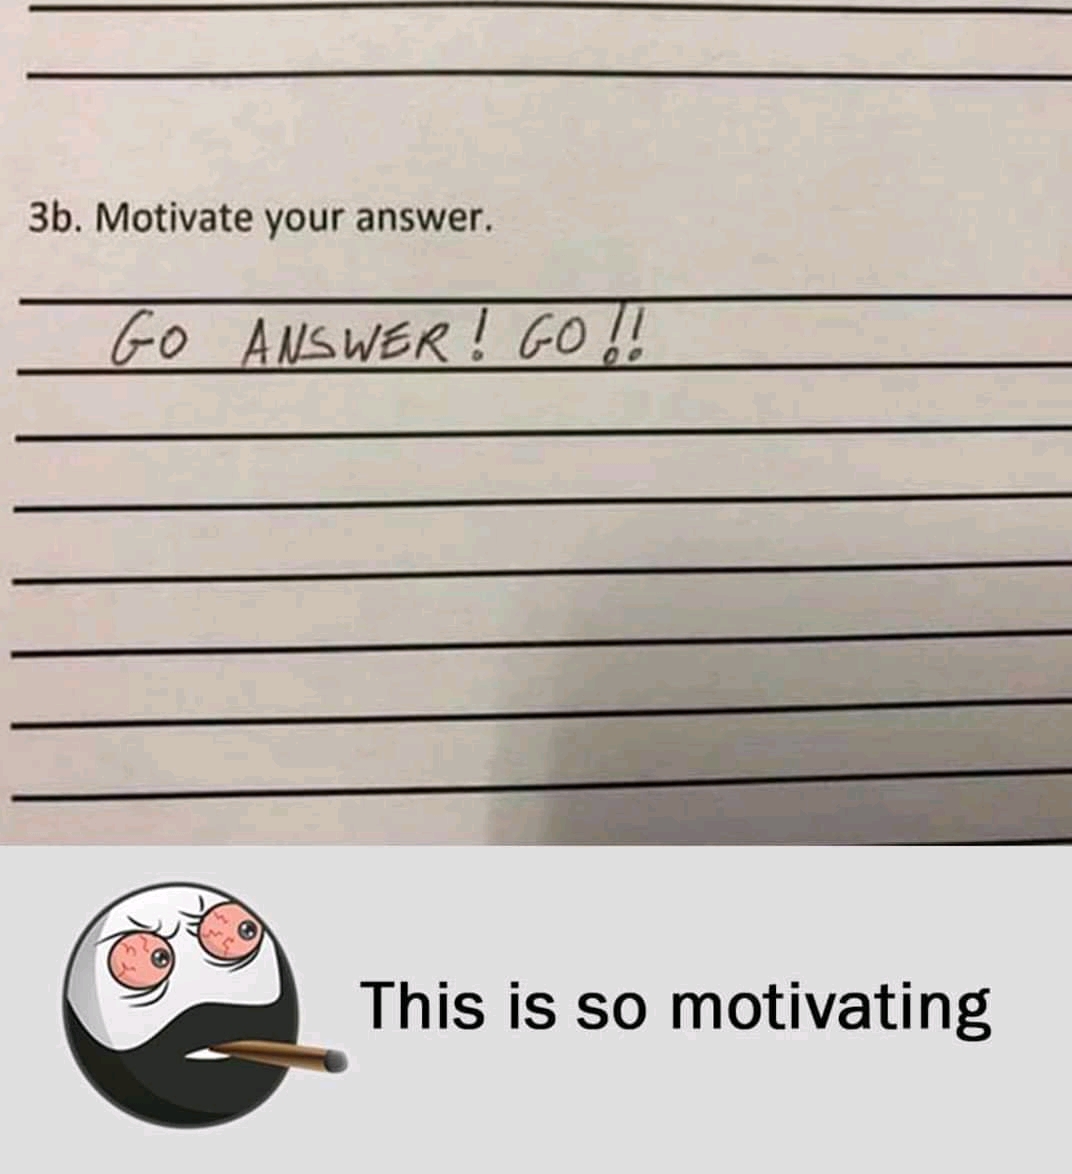 3b. Motivate your answer.
GO ANSWER! GO!!
This is so motivating